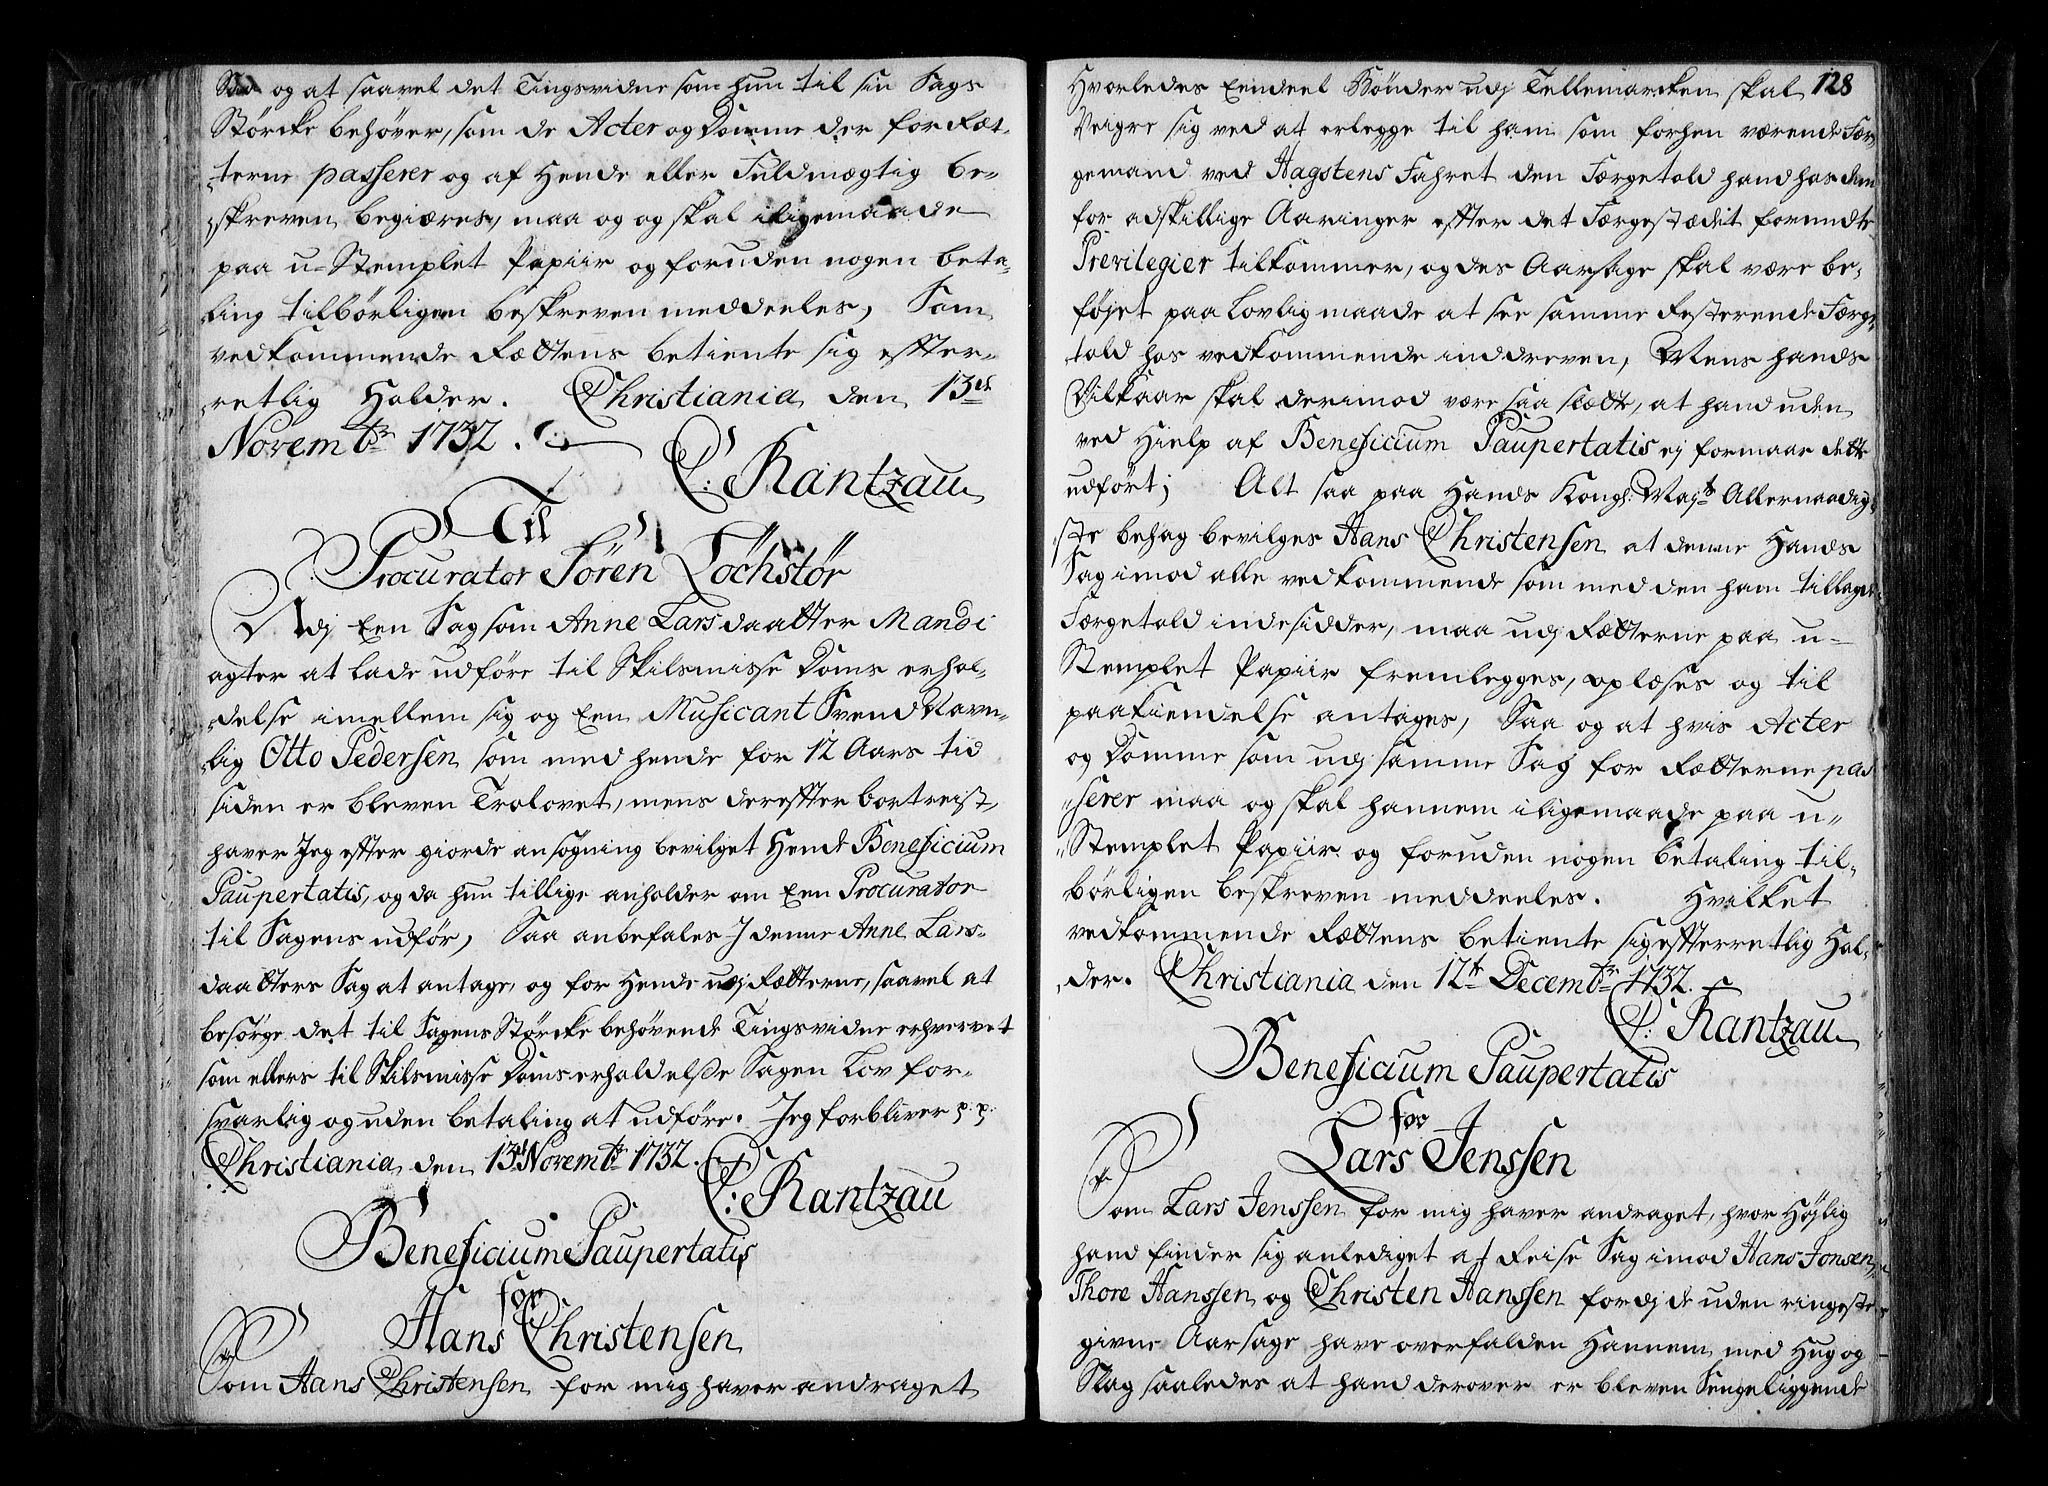 Saa og at saavel det Tingsvidne som hun til sin Sags
Störcke behøver, som de Acter og Domme der for Ræt-
terne passerer og af Hende eller Fuldmægtig be-
skreven begiæres, maa og og skal iligemaade
paa u-Stemplet Papiir og foruden nogen beta-
ling tilbörligen beskreven meddeeles, Som
vedkommende Rættens betiente sig effter-
retlig Holder. Christiania den 13de
Novembr 1732.
C: Rantzau
Til
Procurator Sören Löchstör
Udj Een Sag som Anne Larsdaatter Mandi
agter at lade udföre til Skilsmisse Doms erhol-
delse imellem sig og Een Musicant Svend Navn-
lig Otto Pedersen som med hende for 12 Aars tid
siden er bleven Trolovet, mens dereffter bortreist,
haver Jeg effter giorde ansøgning bevilget Hende Beneficium
Paupertatis, og da hun tillige anholder om Een Procurator
til Sagens udför, Saa anbefales I denne Anne Lars-
daatters Sag at antage, og for Hende udj Rætterne, saavel at
besørge det til Sagens Störcke behøvende Tingsvidne erhvervet
som ellers til Skilsmisse Doms erholdelse Sagen Lov for-
svarlig og uden betaling at udföre. Jeg forbliver p: p:
Christiania den 13de Novembr 1732.
C: Rantzau
Beneficium Paupertatis
for
Hans Christensen
Som Hans Christensen for mig haver andraget
128
Hvorledes Eendeel Bönder udj Tellemarcken skal
Veigre sig ved at erlegge til ham som forhen værende Fær-
gemand ved Hagstens Fahret den Færgetold hand hos dem
for adskillige Aaringer effter det Færgestædet forundte
Previlegier tilkommer, og des Aarsage skal være be-
föjet paa Lovlig maade at see samme Resterende Færge-
told hos vedkommende inddreven, Mens hands
Vilkaar skal derimod være saa slætte, at hand uden
ved Hielp af Beneficium Paupertatis ej formaar dette
udfört; Alt saa paa Hands Kongl: Majts Allernaadig-
ste behag bevilges Hans Christensen at denne Hands
Sag imod alle vedkommende som med den ham tillagde
Færgetold indesidder, maa udj Rætterne paa u-
Stemplet Papiir fremlegges, oplæses og til
paakiendelse antages, Saa og at hvis Acter
og Domme som udj samme Sag for Rætterne pas-
serer maa og skal hannem iligemaade paa u-
Stemplet Papiir og foruden nogen betaling til-
börligen beskreven meddeeles. Hvilket
vedkommende Rættens betiente sig effterretlig Hol-
der. Christiania den 12te Decembr 1732.
C: Rantzau
Beneficium Paupertatis
for
Lars Jenssen
Som Lars Jenssen for mig haver andraget, hvor Höjlig
hand finder sig anlediget at Reise Sag imod Hans Jonsen,
Thore Hanssen og Christen Hanssen fordj de uden ringeste
givne Aarsage have overfalden Hannem med Hug og
Slag saaledes at hand derover er bleven Sengeliggende